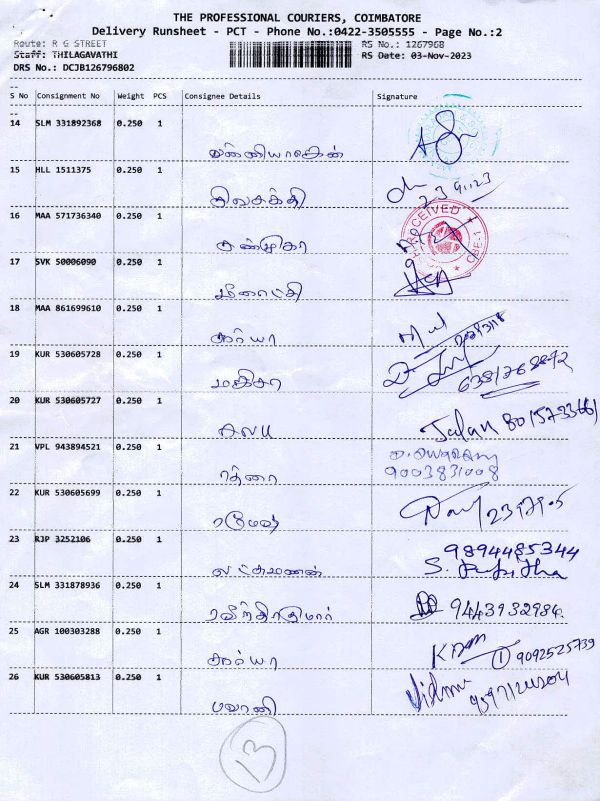 THE PROFESSIONAL COURIERS, COIMBATORE
Delivery Runsheet - PCT - Phone No.:0422-3505555 - Page No.:2
Route: R G STREET RS No.: 1267968
Staff: THILAGAVATHI RS Date: 03-Nov-2023
DRS No.: DCJB126796802
S No Consignment No Weight PCS Consignee Details Signature
14 SLM 331892368 0.250 1
15 HLL 1511375 0.250 1
சிவசக்தி
16 MAA 571736340 0.250 1
RECEIVED
சண்முகா
17 SVK 50006090 0.250 1
மீனாட்சி
18 MAA 861699610 0.250 1
சூர்யா
19 KUR 530605728 0.250 1
6381768872
20 KUR 530605727 0.250 1
21 VPL 943894521 0.250 1
9003831008
22 KUR 530605699 0.250 1
ரமேஷ்
23 RJP 3252106 0.250 1
9894485344
லட்சுமணன்
24 SLM 331878936 0.250 1
ரவீந்திரகுமார் 9443932984
25 AGR 100303288 0.250 1
சூர்யா 9092525739
26 KUR 530605813 0.250 1
பவானி
13